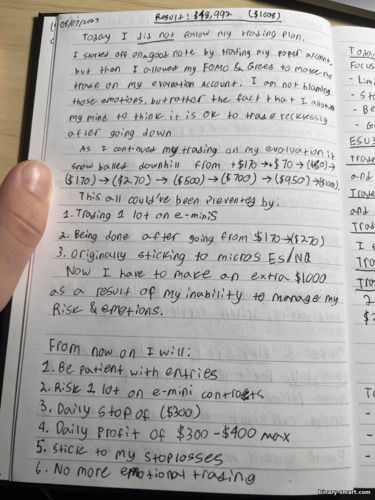 08/07/2023
Result: $49,992 ($1008)
Today I did not follow my trading plan.
I started off on a good note by trading my paper account,
but then I allowed my FOMO & Greed to make me
trade on my evaluation account. I am not blaming
those emotions, but rather the fact that I allowed
my mind to think it is ok to trade recklessly
after going down
As I continued my trading on my evaluation it
snow balled downhill from +$170 → +$70 → ($80) →
($170) → ($270) → ($500) → ($700) → ($950) → ($1008).
This all could've been prevented by:
1. Trading 1 lot on e-minis
2. Being done after going from $170 → ($270)
3. Originally sticking to micros ES/NQ
Now I have to make an extra $1000
as a result of my inability to manage my
Risk & emotions.
From now on I will:
1. Be patient with entries
2. Risk 1 lot on e-mini contracts
3. Daily Stop of ($300)
4. Daily Profit of $300-$400 max
5. Stick to my stoplosses
6. No more emotional trading
Toda
Focus
- Lim
- St
- Be
- Gi
ESU3
Trade
and
Trade
and
Trad
I t
Tra
Tra
2
$
To
binary-smart.com